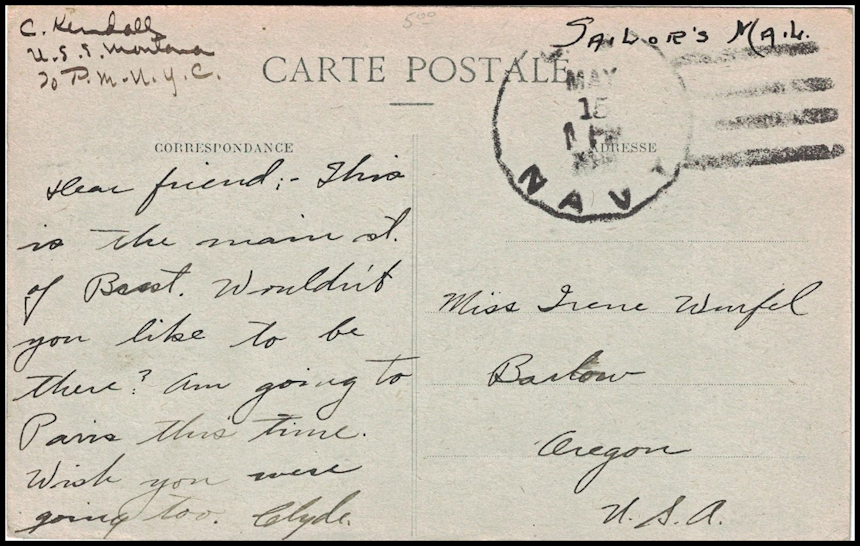 C. Kendall
U.S.S. Montana
℅ P.M.N.Y.C.
5.00
SAILOR'S MAIL
CARTE POSTALE
MAY
15
NAVY
CORRESPONDANCE
ADRESSE
Dear friend:- This
is the main st.
of Brest. Wouldn't
you like to be
there? Am going to
Paris this time.
Wish you were
going too. Clyde.
Miss Irene Wurfel
Barlow
Oregon
U.S.A.